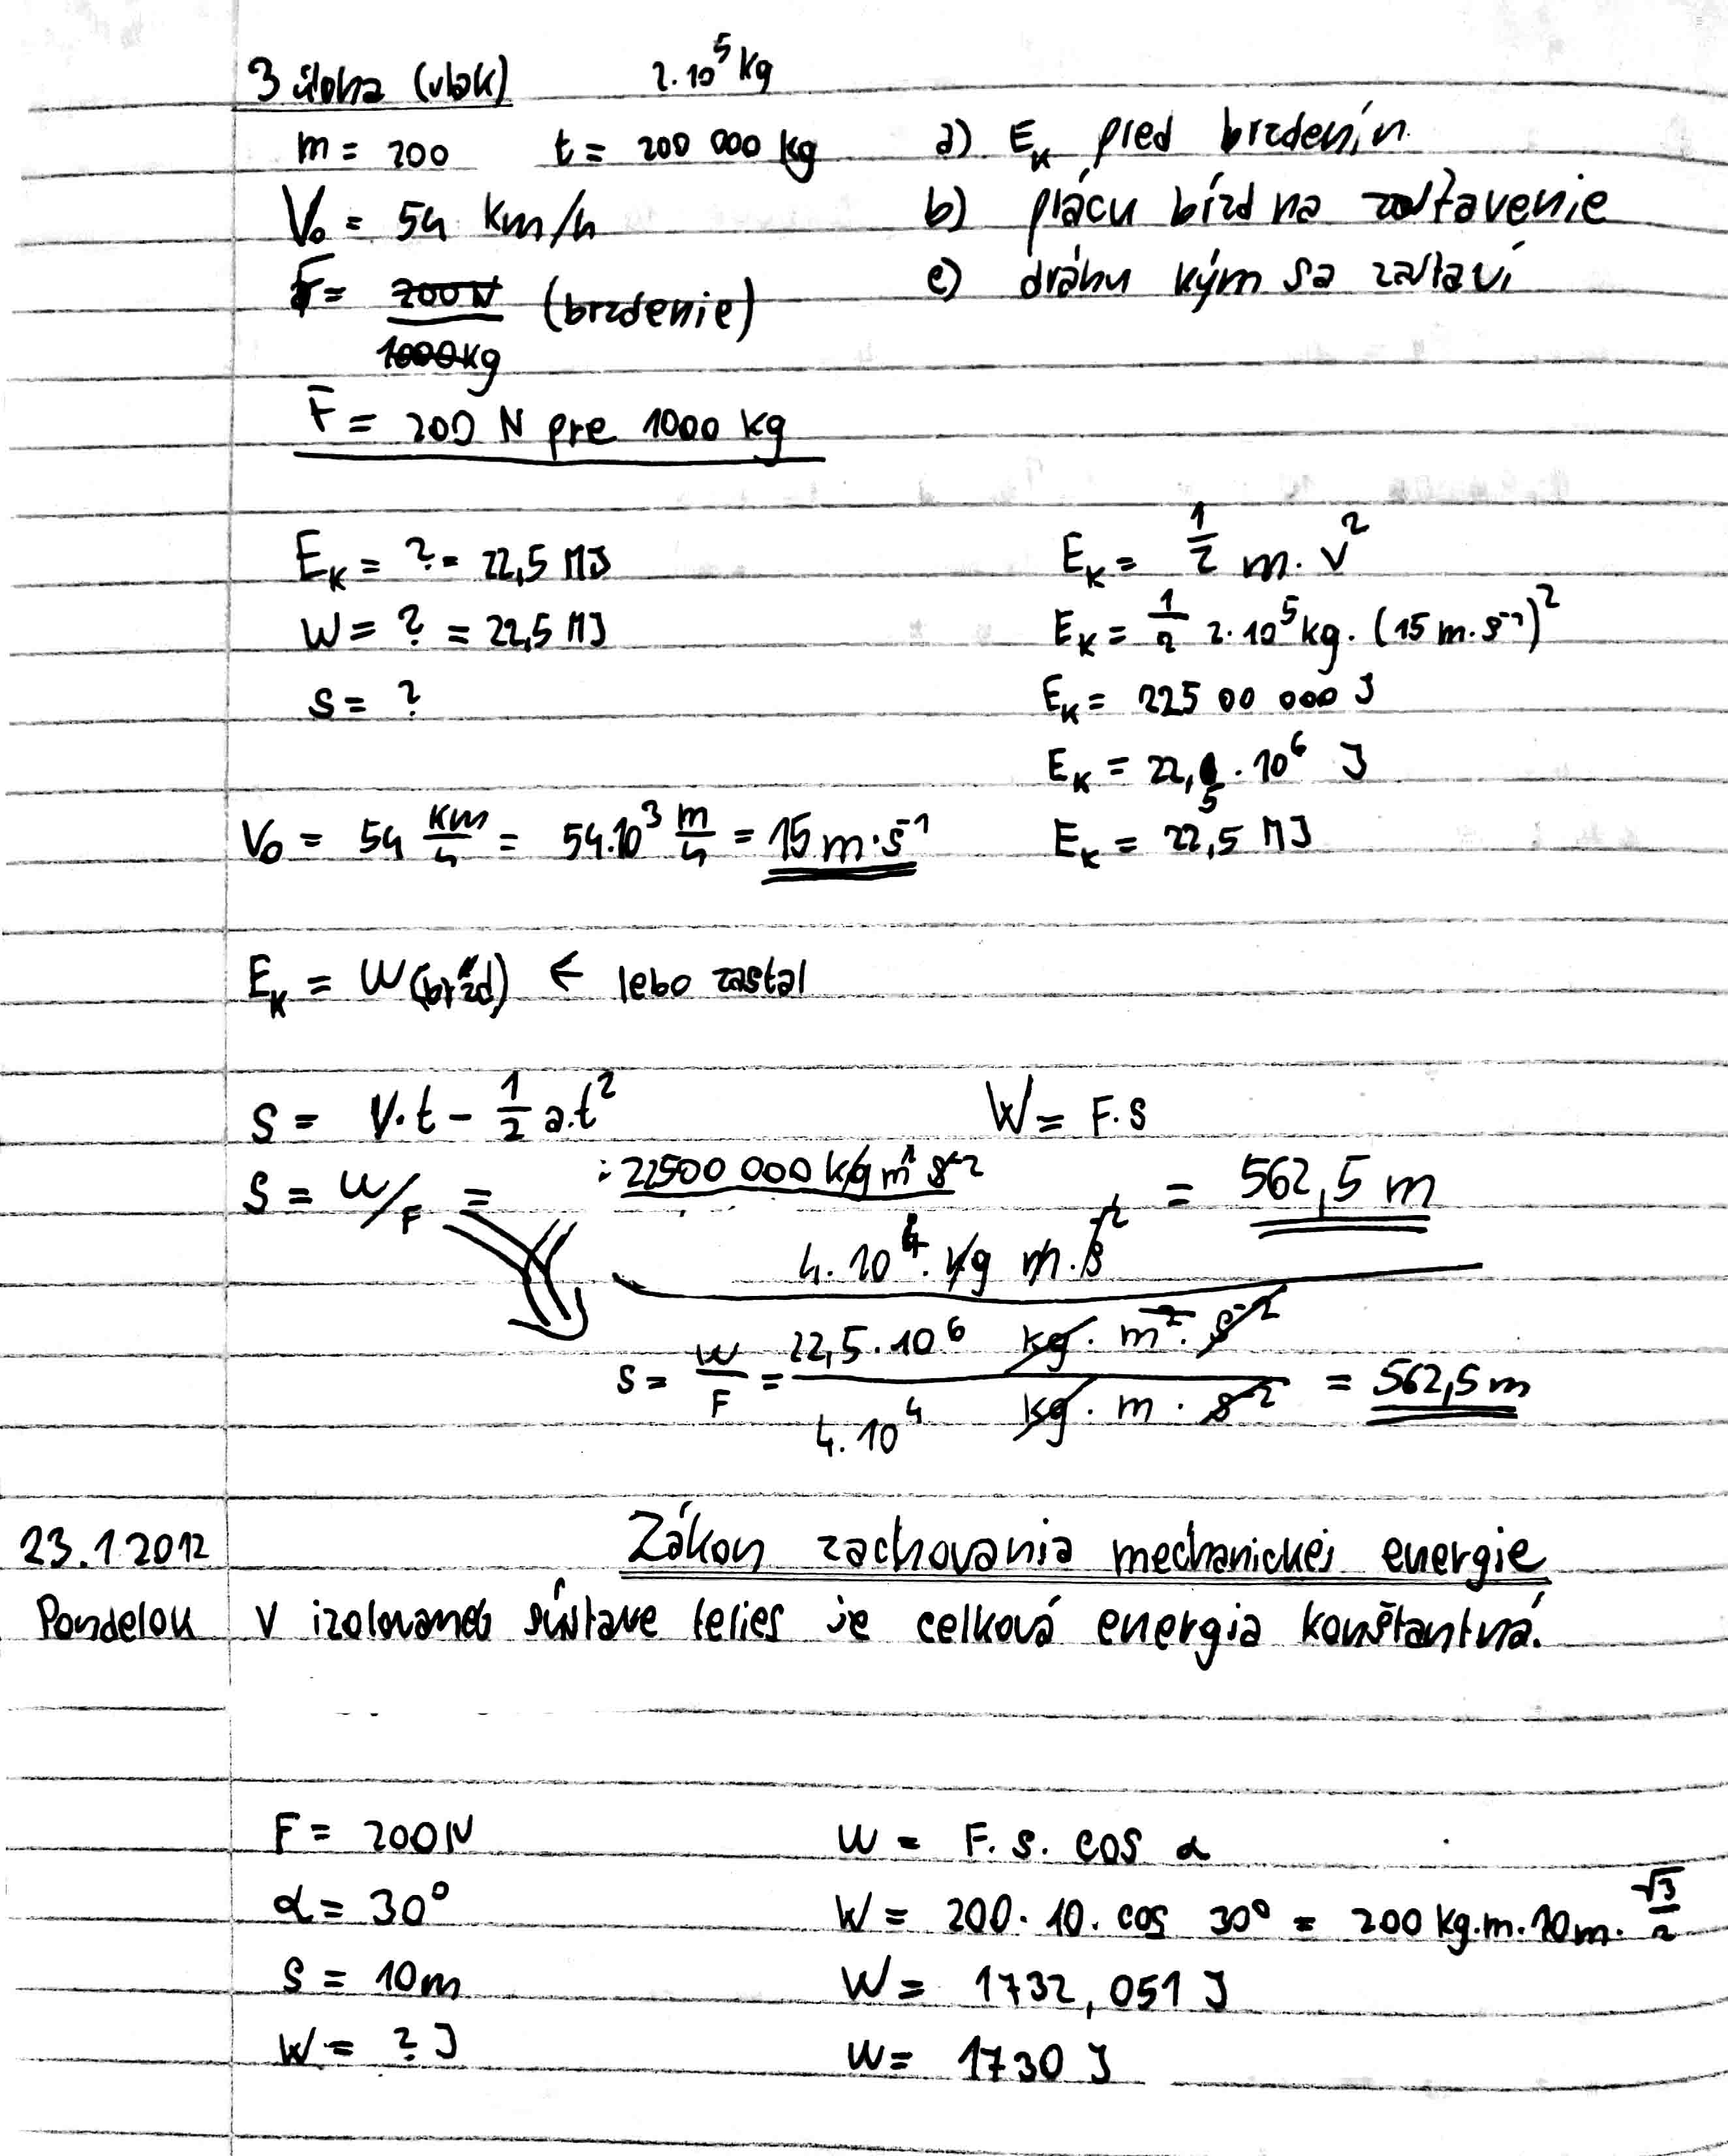 3 úloha (vlak) 2.10⁵ kg
m = 200 t = 200 000 kg
V₀ = 54 km/h
F = 200 N (brzdenie)
1000kg
F = 200 N pre 1000 kg
a) Eₖ pred brzdením
b) prácu bŕzd na zastavenie
c) dráhu kým sa zastaví
Eₖ = ? = 22,5 MJ
W = ? = 22,5 MJ
S = ?
Eₖ = 1/2 m. v²
Eₖ = 1/2 2.10⁵ kg. (15 m.s⁻¹)²
Eₖ = 225 00 000 J
Eₖ = 22,5 . 10⁶ J
Eₖ = 22,5 MJ
V₀ = 54 km/h = 54.10³ m/h = 15 m.s⁻¹
Eₖ = W(bŕzd) ← lebo zastal
S = V.t - 1/2 a.t²
W = F.S
S = W/F = 22500 000 kg m² s⁻² / 4.10⁴ . kg m.s⁻² = 562,5 m
S = W/F = 22,5.10⁶ kg. m². s⁻² / 4.10⁴ kg. m . s⁻² = 562,5 m
23.1.2012 Zákon zachovania mechanickej energie
Pondelok V izolovanej sústave telies je celková energia konštantná.
F = 200 N
α = 30°
S = 10m
W = ? J
W = F. S. cos α
W = 200. 10. cos 30° = 200 kg.m.10m. √3/2
W = 1732,051 J
W = 1730 J